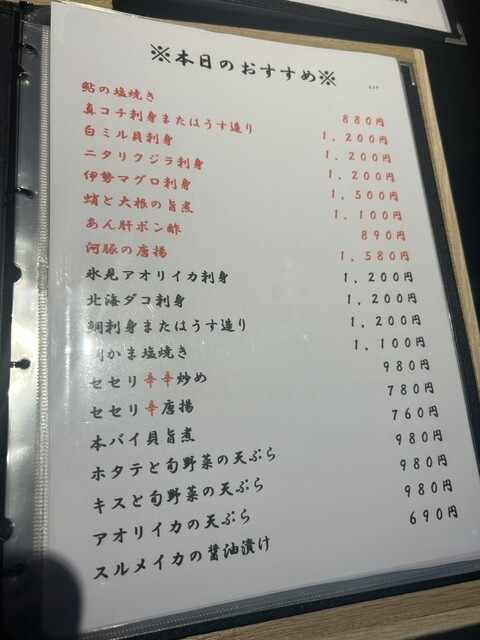 ※本日のおすすめ※
鮎の塩焼き 880円
真コチ刺身またはうす造り 1,200円
白ミル貝刺身 1,200円
ニタリクジラ刺身 1,200円
伊勢マグロ刺身 1,500円
蛸と大根の旨煮 1,100円
あん肝ポン酢 890円
河豚の唐揚 1,580円
氷見アオリイカ刺身 1,200円
北海ダコ刺身 1,200円
鯛刺身またはうす造り 1,200円
かま塩焼き 1,100円
セセリ辛辛炒め 980円
セセリ辛唐揚 780円
本バイ貝旨煮 760円
ホタテと旬野菜の天ぷら 980円
キスと旬野菜の天ぷら 980円
アオリイカの天ぷら 980円
スルメイカの醤油漬け 690円